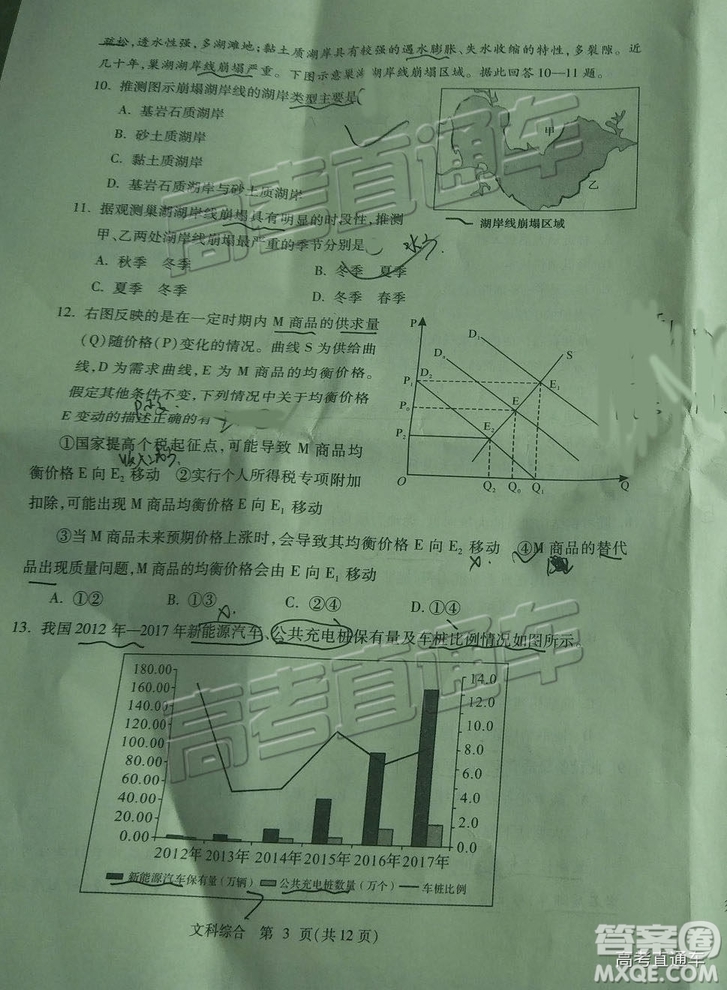 疏松,透水性强,多湖滩地;黏土质湖岸具有较强的遇水膨胀、失水收缩的特性,多裂隙。近
几十年,巢湖湖岸线崩塌严重。下图示意巢湖湖岸线崩塌区域。据此回答10—11题。
10. 推测图示崩塌湖岸线的湖岸类型主要是
A. 基岩石质湖岸
B. 砂土质湖岸
C. 黏土质湖岸
D. 基岩石质湖岸与砂土质湖岸
甲
乙
湖岸线崩塌区域
11. 据观测巢湖湖岸线崩塌具有明显的时段性,推测
甲、乙两处湖岸线崩塌最严重的季节分别是
A. 秋季 冬季
B. 冬季 夏季
C. 夏季 冬季
D. 冬季 春季
12. 右图反映的是在一定时期内M商品的供求量
(Q)随价格(P)变化的情况。曲线S为供给曲
线,D为需求曲线,E为M商品的均衡价格。
假定其他条件不变,下列情况中关于均衡价格
E变动的描述正确的有
①国家提高个税起征点,可能导致M商品均
衡价格E向E₂移动 ②实行个人所得税专项附加
扣除,可能出现M商品均衡价格E向E₁移动
P
D₁
D₂
S
P₁
E₁
P₀
E
P₂
E₂
O
Q₂
Q₀
Q₁
Q
③当M商品未来预期价格上涨时,会导致其均衡价格E向E₂移动 ④M商品的替代
品出现质量问题,M商品的均衡价格会由E向E₁移动
A. ①②
B. ①③
C. ②④
D. ①④
13. 我国2012年—2017年新能源汽车、公共充电桩保有量及车桩比例情况如图所示。
180.00
160.00
140.00
120.00
100.00
80.00
60.00
40.00
20.00
0.00
14.0
12.0
10.0
8.0
6.0
4.0
2.0
0.0
2012年 2013年 2014年 2015年 2016年 2017年
新能源汽车保有量(万辆) 公共充电桩数量(万个) 车桩比例
文科综合 第 3 页(共12页)
高考直通车
高考直通车
答案圈
高考直通车
MXQE.COM